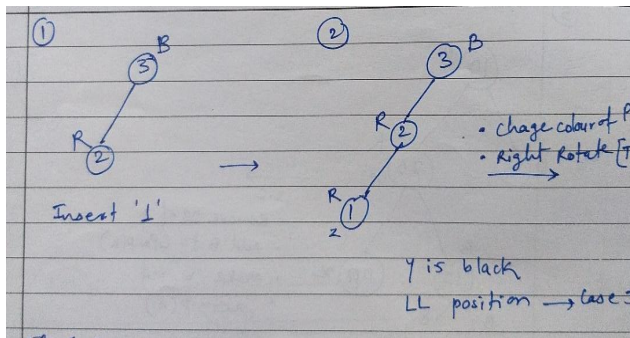 1
2
B
3
R
2
Insert '1'
B
3
R
2
R
1
z
• Chage colour of P
• Right Rotate [T
y is black
LL position → Case